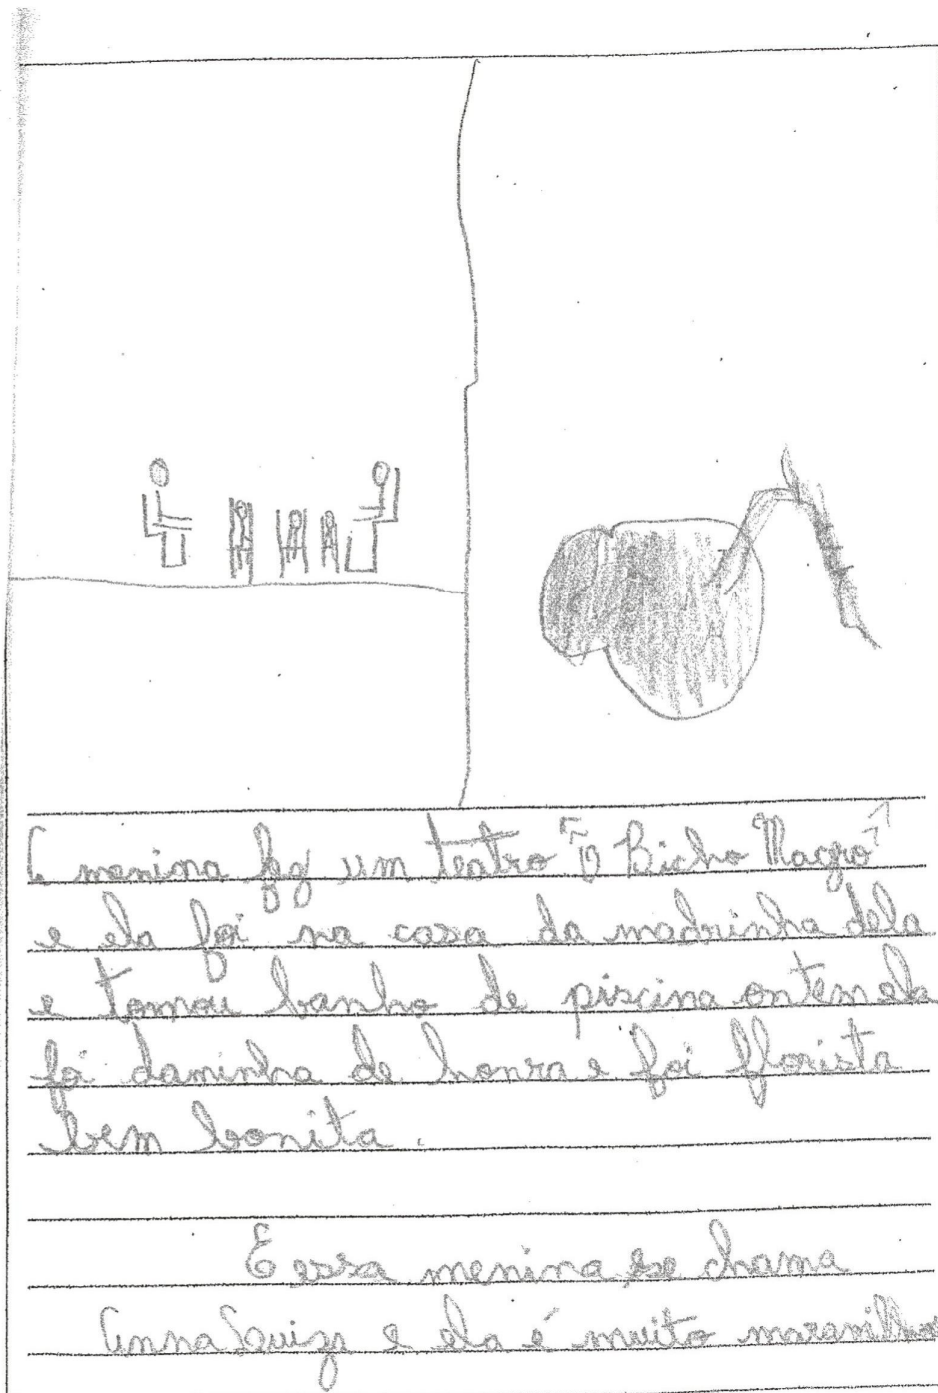 A menina fez um teatro "O Bicho Magro"
e ela foi na casa da madrinha dela
e tomou banho de piscina ontem ela
foi daminha de honra e foi florista
bem bonita.
E essa menina se chama
Anna Luiza e ela é muito maravilhosa